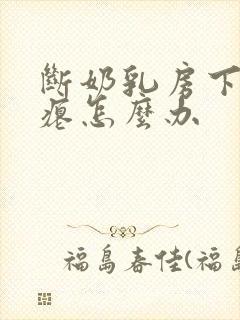 斷奶乳房下
瘪怎麼办
福島春佳(福島